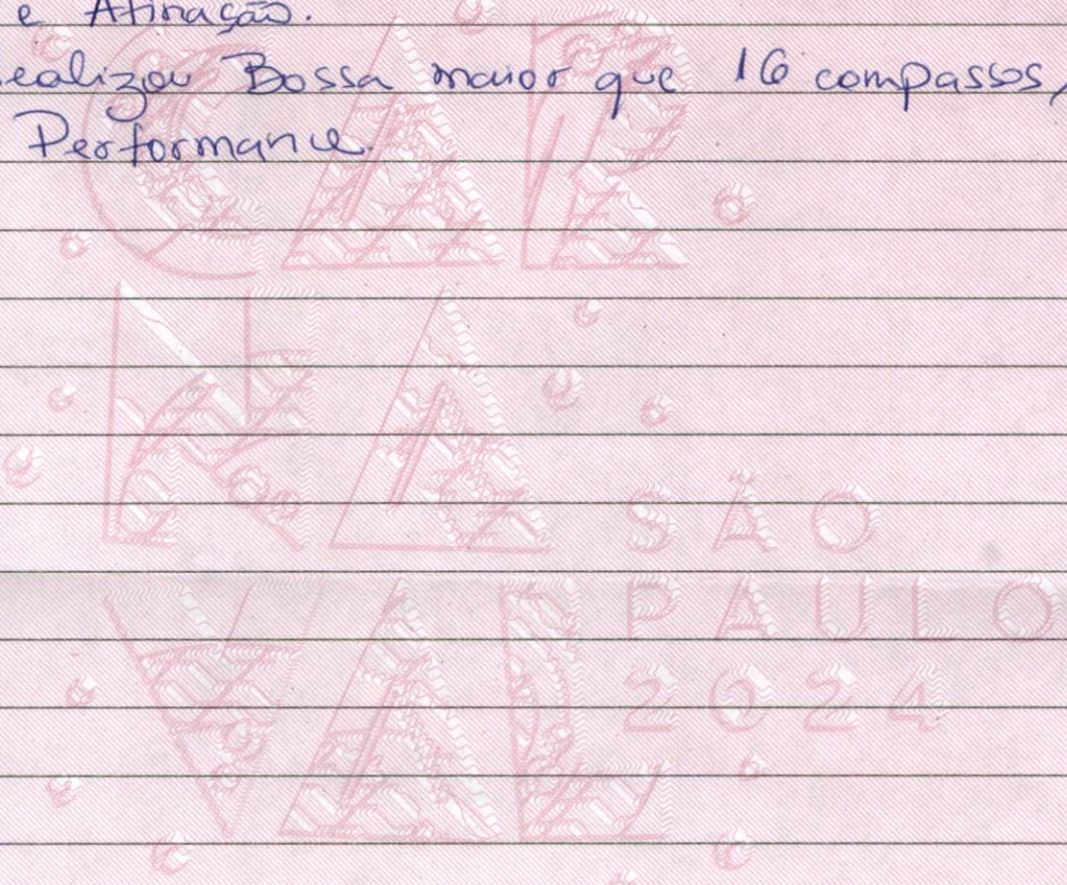 e Afinação.
ealizou Bossa maior que 16 compassos,
Performance.
CAR
NA
SÃO
VAL PAULO
2024